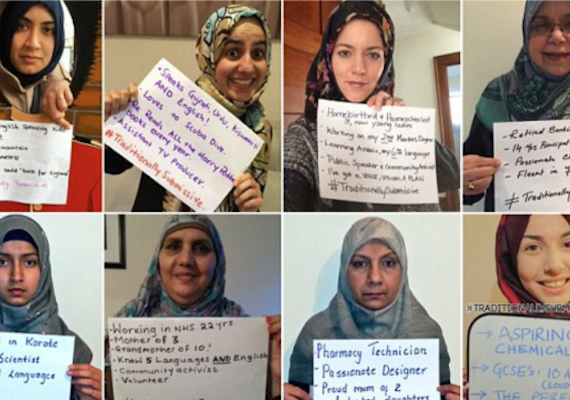 English Speaking Kids
mountain
Speaks Gujrati, Urdu, Kisowahili
AND English!
Loves to Scuba Dive
Re Reads ALL the Harry Potter
books every year.
Assistant TV Producer.
#TraditionallySubmissive
- Homebirthed & Homeschooled
young ladies
- Working on my 2nd Masters Degree
- Learning Arabic, my 6th language
- Public Speaker & Community Activist
- I've got a voice, vision & PLAN
#TraditionallySubmissive
- Retired
- 14 yrs
- Passionate
- Fluent in
#Traditionally
in Karate
Scientist
Language
- Working in NHS 22 yrs
- Mother of 3
- Grandmother of 10!
- Know 5 Languages AND English
- Community activist
- Volunteer
Pharmacy Technician
- Passionate Designer
- Proud mum of 2
daughters
#TRADITIONALLYSUBM
→ ASPIRING
CHEMICAL
→ GCSE's: 10 A
→ THE PERF